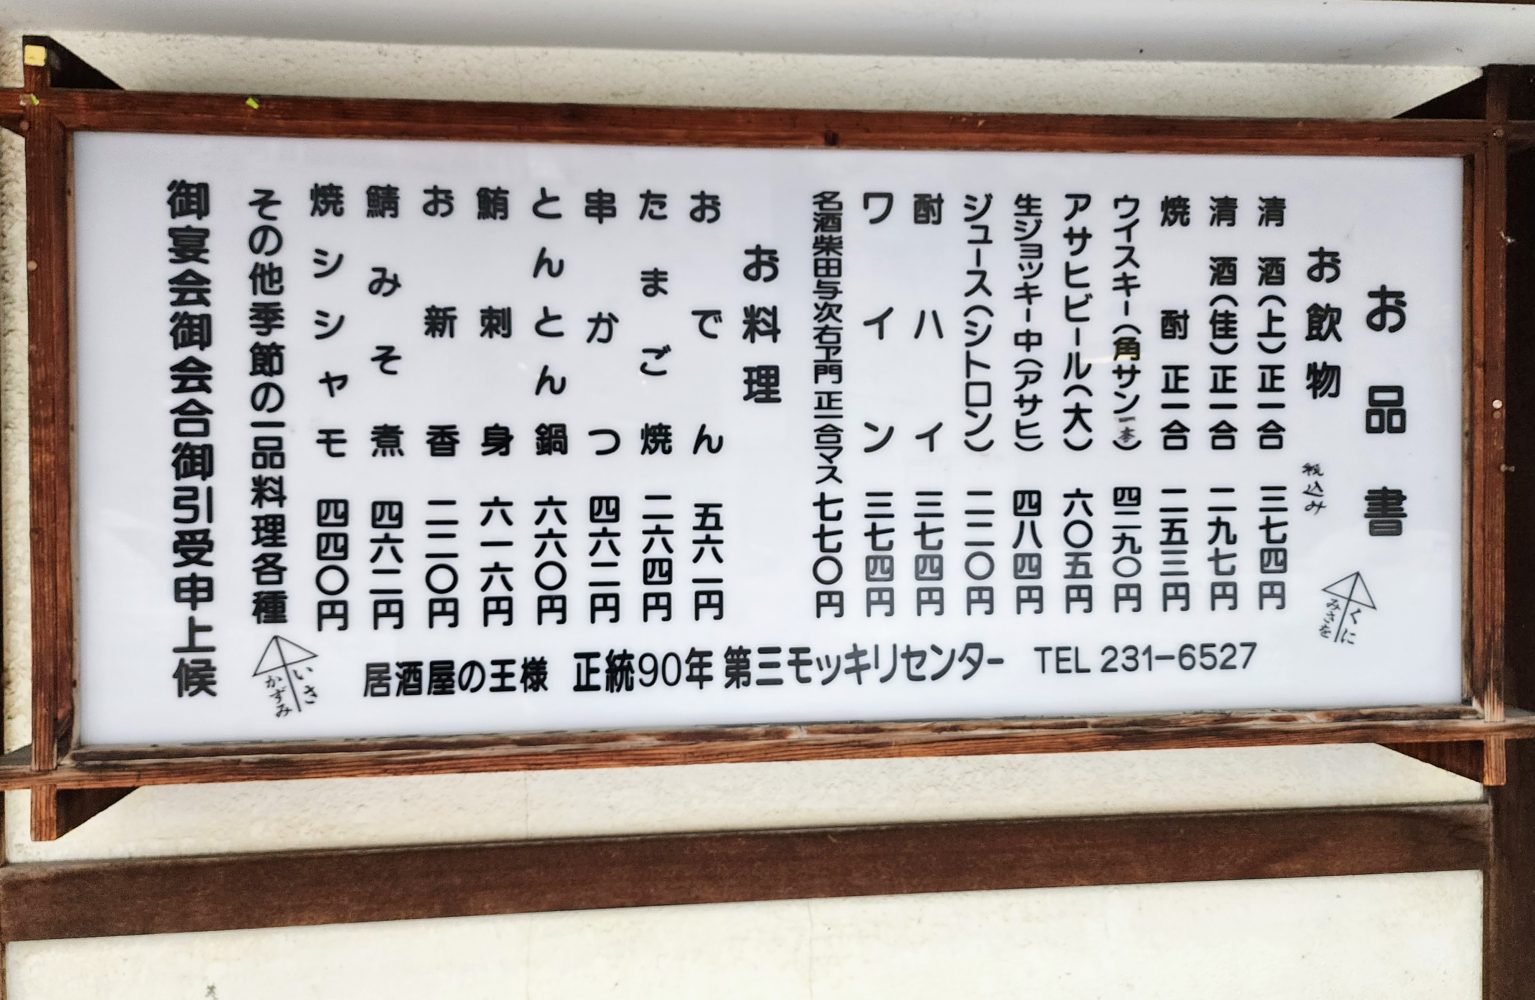 お品書
税込み
くに
みさを
お飲物
清酒(上)正一合 三七四円
清酒(佳)正一合 二九七円
焼酎 正一合 二五三円
ウイスキー(角サン一本) 四二九〇円
アサヒビール(大) 六〇五円
生ジョッキー中(アサヒ) 四八四円
ジュース(シトロン) 二二〇円
酎ハイ 三七四円
ワイン 三七四円
名酒柴田与次右ヱ門 正一合マス 七七〇円
お料理
おでん 五六一円
たまご焼 二六四円
串かつ 四六二円
とんとん鍋 六六〇円
鮪刺身 六一六円
お新香 二二〇円
鯖みそ煮 四六二円
焼シシャモ 四四〇円
その他季節の一品料理各種
いさ
かずみ
御宴会御会合御引受申上候
居酒屋の王様 正統90年 第三モッキリセンター TEL 231-6527